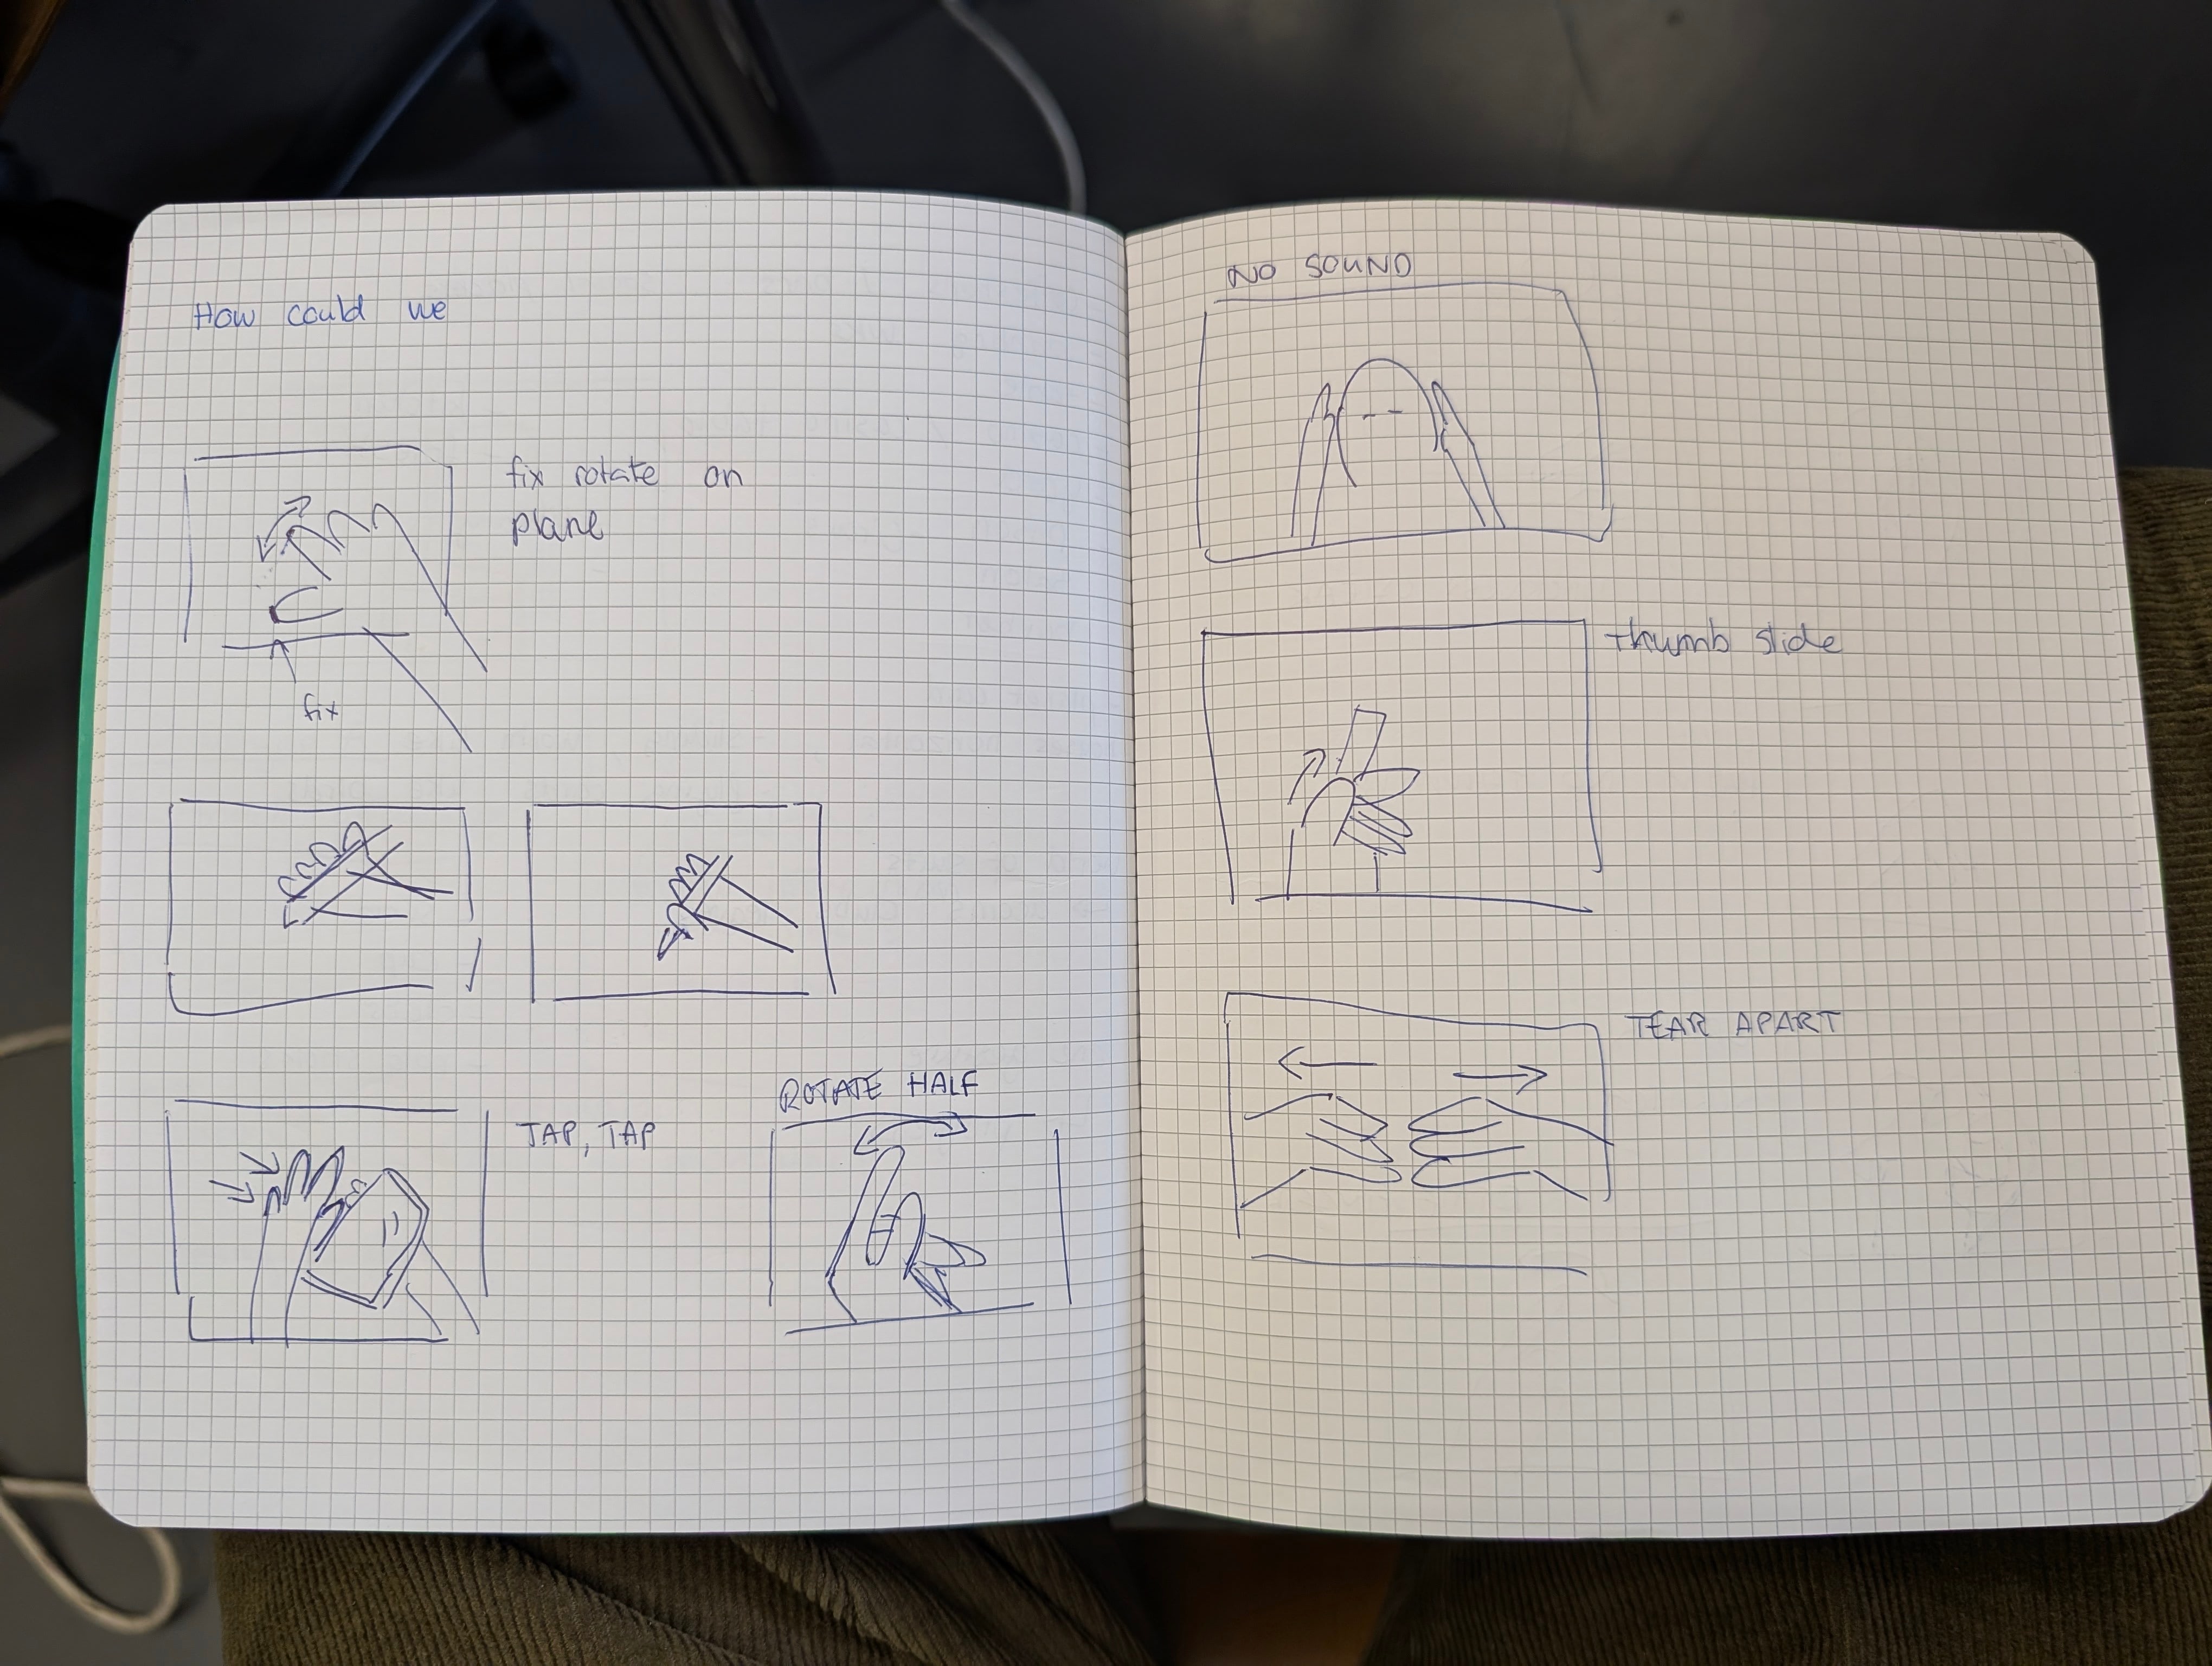 How could we
fix rotate on
plane
fix
TAP, TAP
ROTATE HALF
NO SOUND
thumb slide
TEAR APART